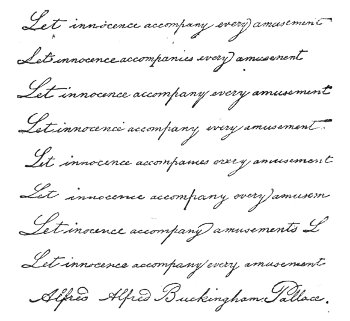 Let innocence accompany every amusement
Let innocence accompanies every amusement
Let innocence accompany every amusement
Let innocence accompany every amusement.
Let innocence accompanies every amusement
Let innocence accompany every amusem
Let inocence accompany amusements L
Let innocence accompany every amusement
Alfred Alfred Buckingham Pallace.